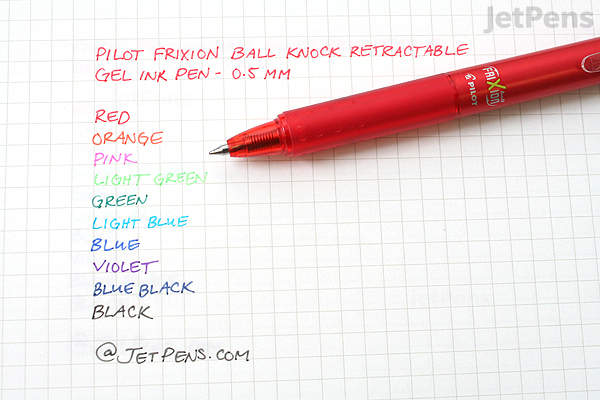 JetPens
PILOT FRIXION BALL KNOCK RETRACTABLE
GEL INK PEN - 0.5 MM
FRIXION
PILOT
RED
ORANGE
PINK
LIGHT GREEN
GREEN
LIGHT BLUE
BLUE
VIOLET
BLUE BLACK
BLACK
@JETPENS.COM